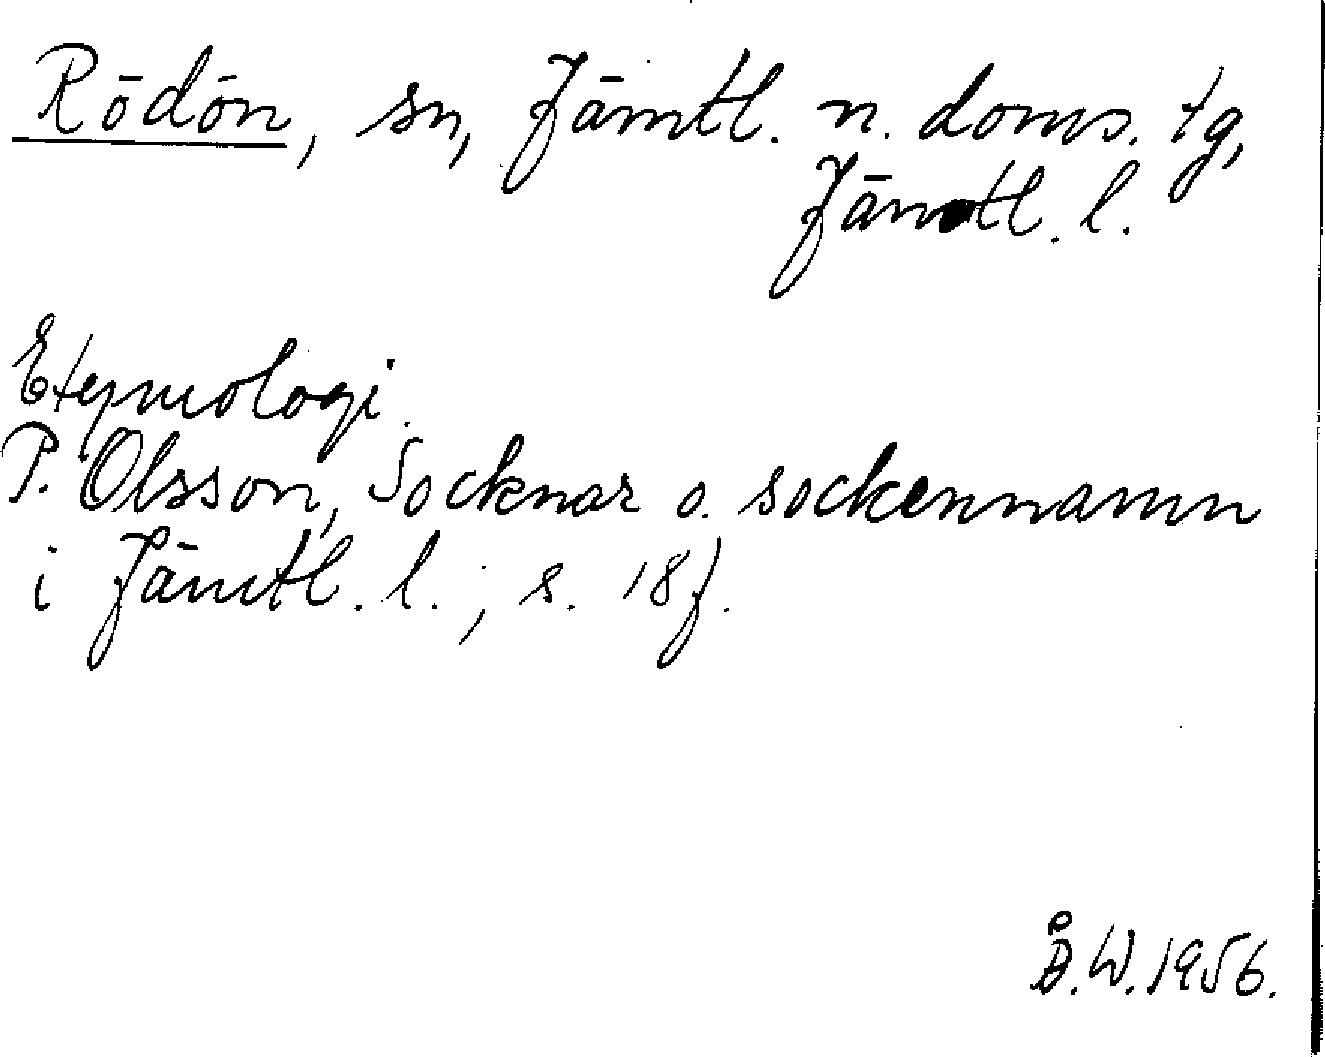 Rödön, sn, Jämtl. n. doms. tg,
Jämtl. l.
Etymologi.
P. Olsson, Socknar o. sockennamn
i Jämtl. l., s. 18f.
Å.W.1956.